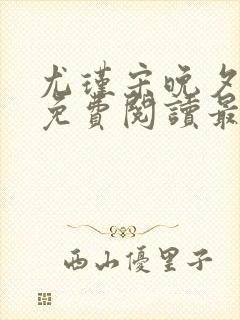 尤瑾宋晚夕
免費閱讀最
西山優里子